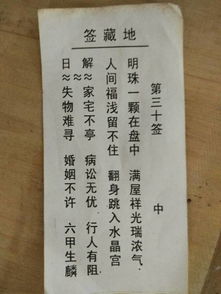 地藏签
第三十签 中
明珠一颗在盘中 满屋祥光瑞浓气
人间福浅留不住 翻身跳入水晶宫
解≈家宅不亭 病讼无忧 行人有阻
日≈失物难寻 婚姻不许 六甲生麟